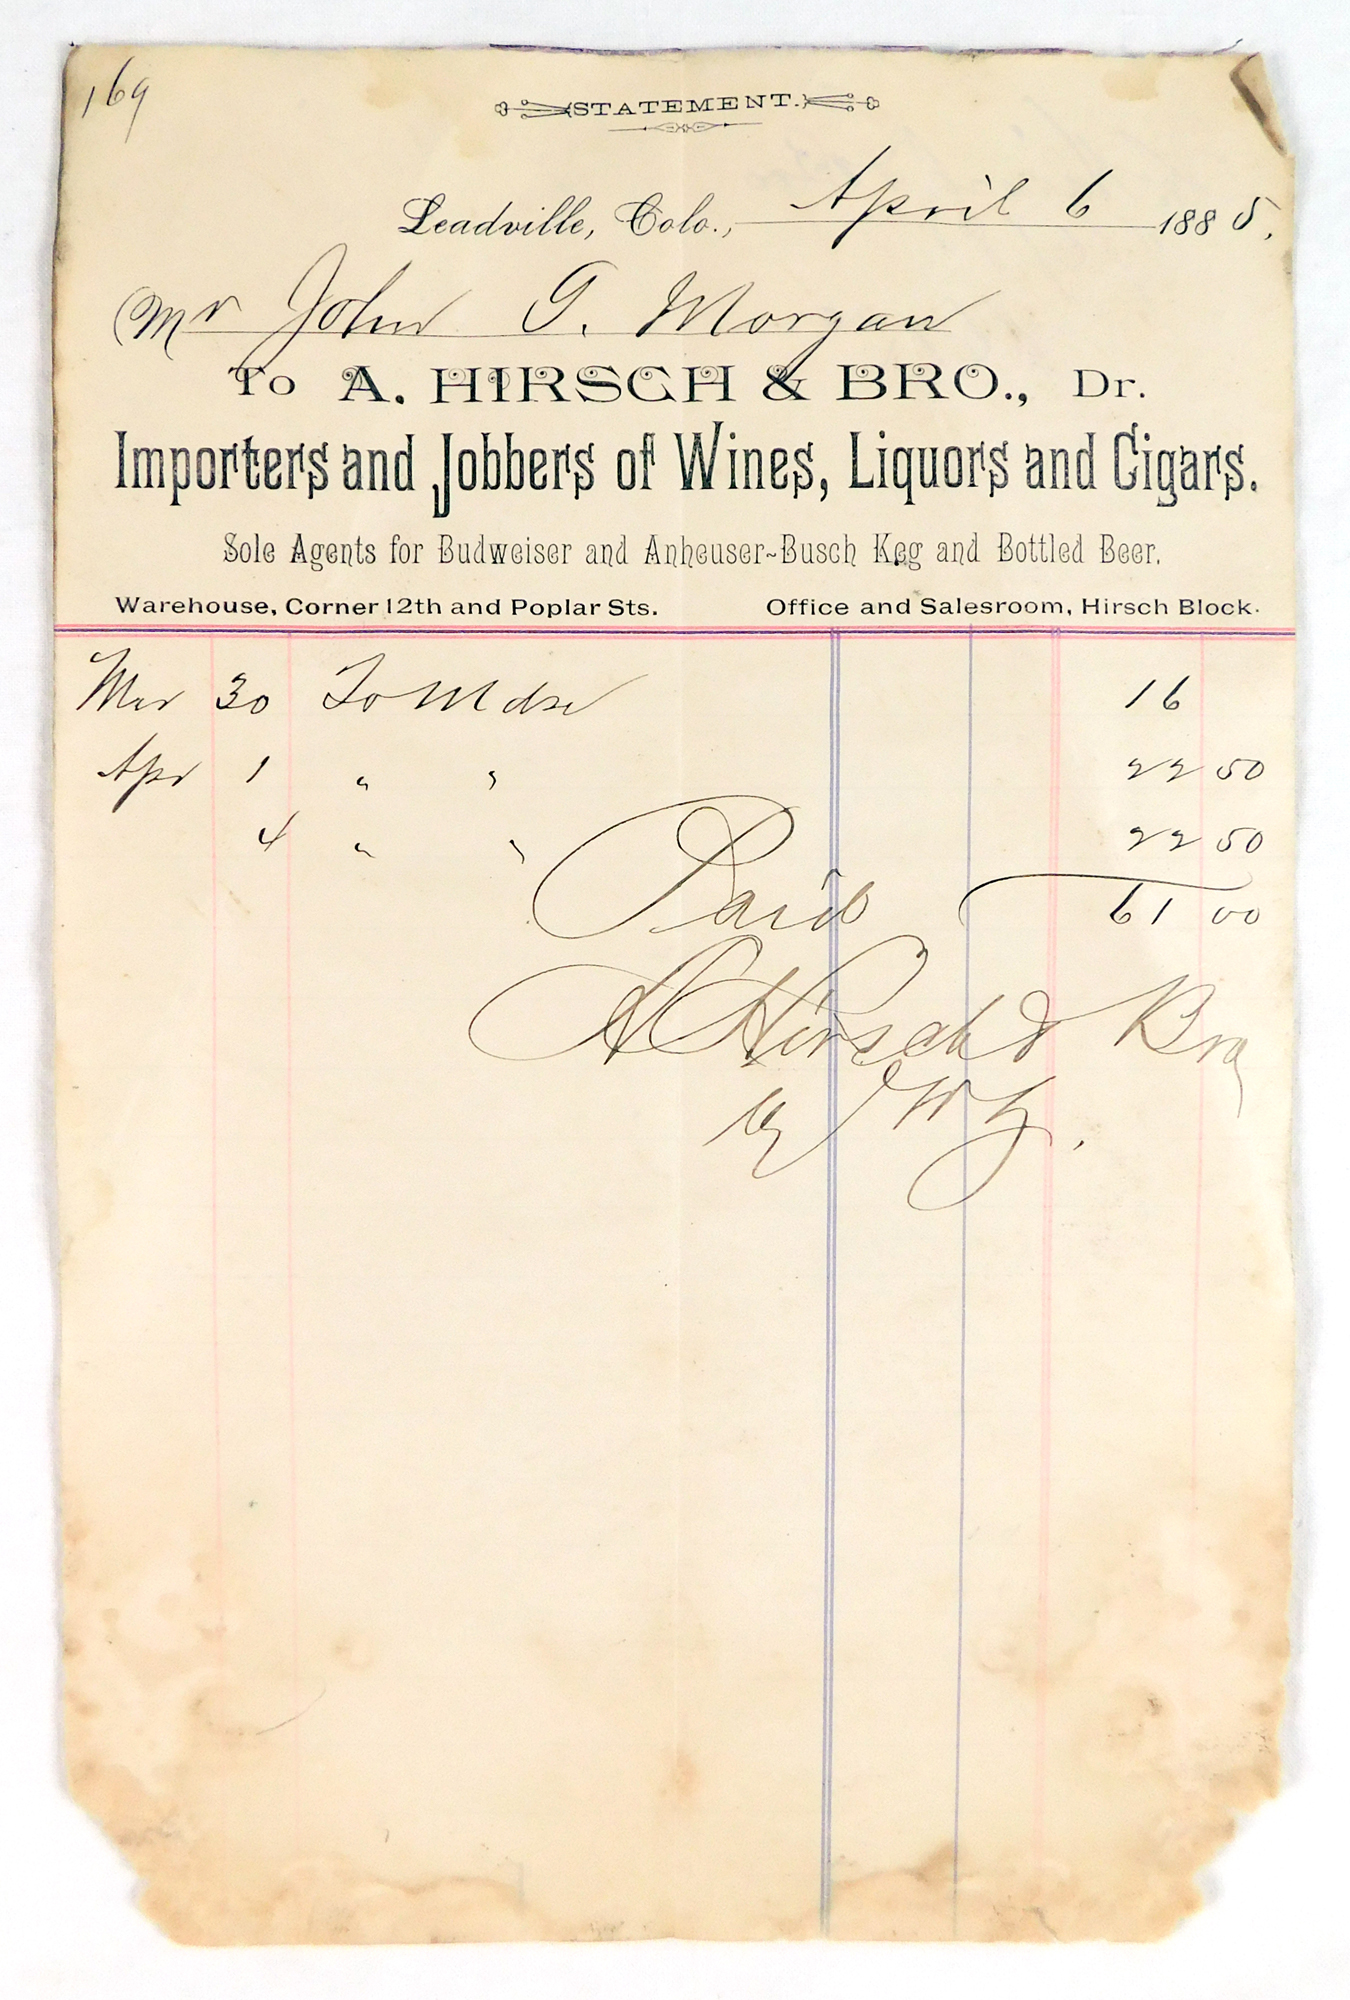 169
STATEMENT.
Leadville, Colo., April 6 1885.
Mr John G. Morgan
To A. HIRSCH & BRO., Dr.
Importers and Jobbers of Wines, Liquors and Cigars.
Sole Agents for Budweiser and Anheuser-Busch Keg and Bottled Beer.
Warehouse, Corner 12th and Poplar Sts. Office and Salesroom, Hirsch Block.
Mar 30 To Mdse 16
Apr 1 " " 22 50
4 " " 22 50
Paid 61 00
A Hirsch & Bro
by